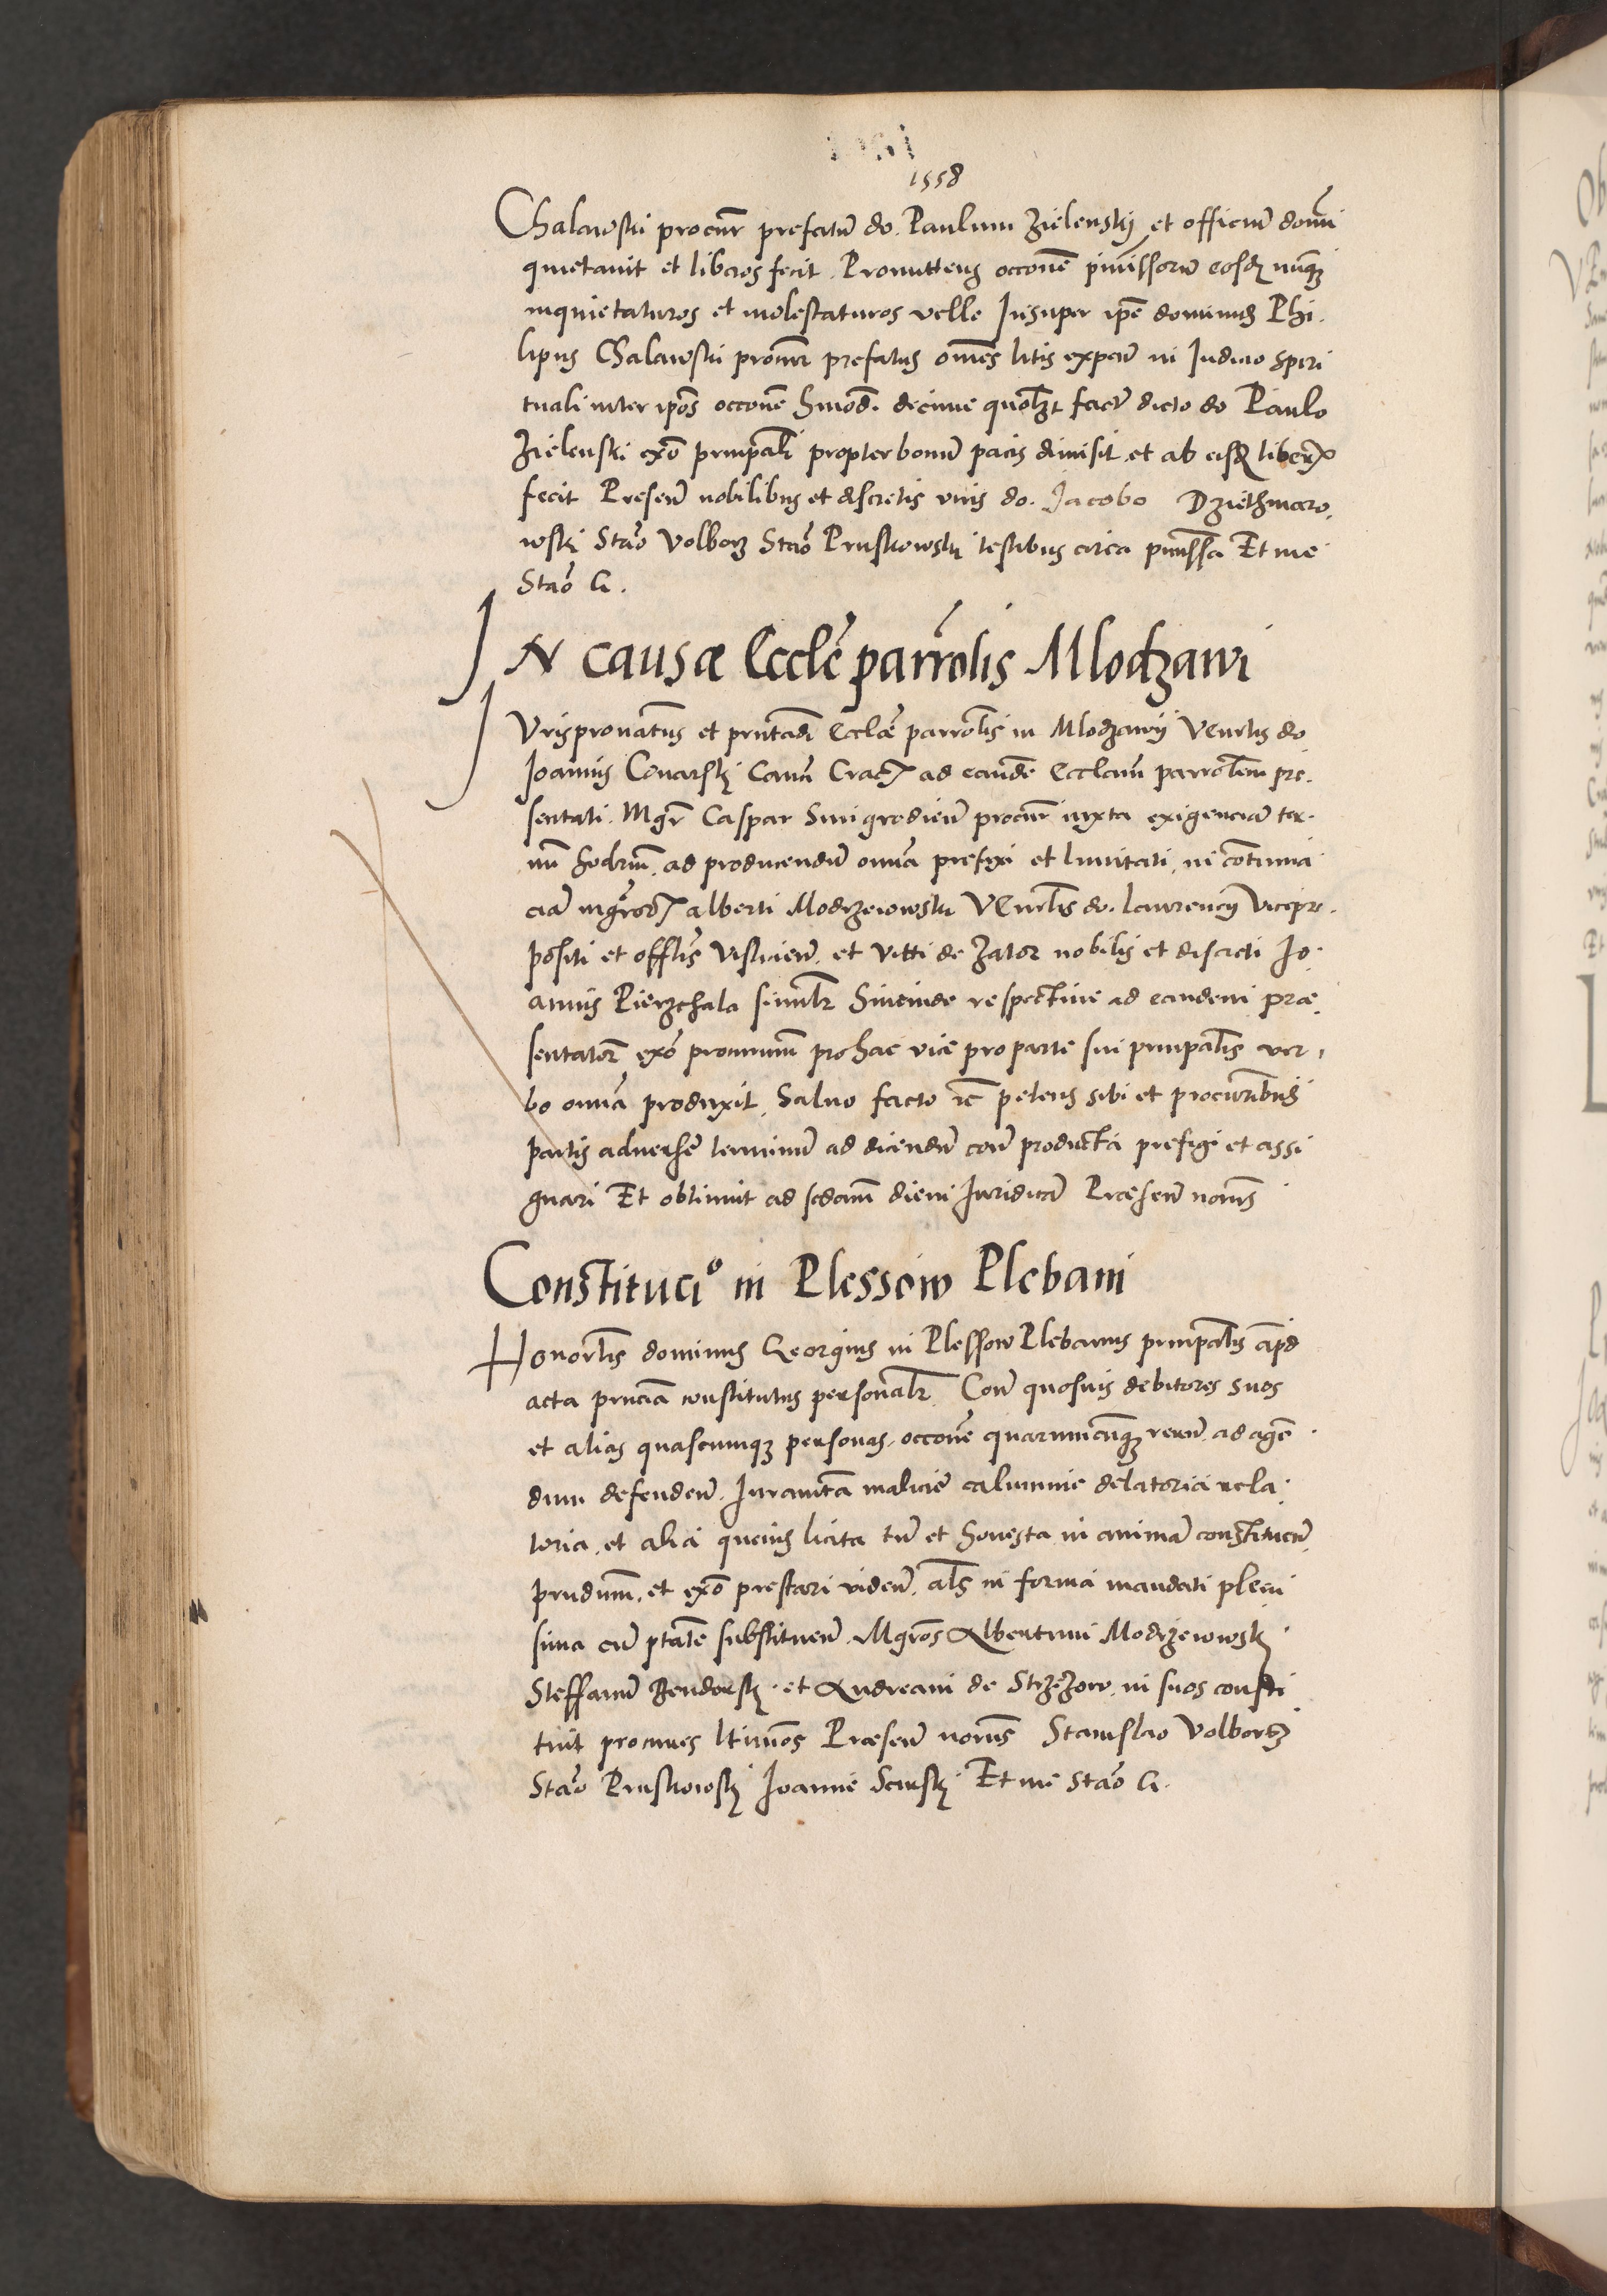 1558
Chalawski procur prefatum do. Paulum Zielenskij et officium domi
quietavit et liberos fecit. Promittens occone pmissorum eosdem nunquam
inquietaturos et molestaturos velle Insuper ipe dominus Phi.
lipus Chalawski procur prefatus omes litis expen in Iudicio spiri
tuali inter ipos occone hmoi decime quolzt fact dicto do Paulo
Zielenski exo prinpali propter bonum pacis dimisit et ab eisdem liberum
fecit Presen nobilibus et discretis viris do. Iacobo Dziethmaro,
wski Stao Volborz Stao Pruskowski testibus circa pmissa Et me
Stao G.
IN causa Eccle parrolis Mlodzawi
Iuris pronatus et pntadi Ecclae parrolis in Mlodzawij Venrlis do
Ioannis Conarskj Canci Crac ad eande Ecclam parrolem pre.
sentati. Mgr Caspar Smigrodien procur iuxta exigenciam ter.
mi hodrni, ad producendum omnia prefixi et limitati, in contuma
ciam mgror alberti Modrzeiowski Venrlis do. Laurencij Vicepre.
positi et offlis Vislicien. et Vitti de Zator nobilis et discreti Io.
annis Pierzchala similr hincinde respective ad eandem prae
sentator exo procurum pro hac vice pro parte sui prinpalis ver,
bo omnia produxit, Salvo facto rc petens sibi et procuribus
partis adverse terminum ad dicendum con producta prefigi et assi
gnari Et obtinuit ad scdam diem Iuridicam Praesen noris
Constitucio in Plessow Plebani
Honorlis dominus Georgius in Plessow Plebanus prinpalis apd
acta pncia constitutus personalr. Con quosvis debitores suos
et alias quascumque personas, occone quarumcunque rerum ad agen
dum defendend. Iuramta malicie calumnie delatoria rela
toria, et alia quevis licita tn et honesta in animam constituen
prndum, et exo prestari viden. als in forma mandati pleni
sima cum ptate substituen. Mgros Albertum Modrzeiowskj
Steffanum Bendorskj et Andream de Strzezow in suos consti
tuit procures ltimos Praesen noris Stanislao Volborz
Stao Pruskowskj Ioanne Scruskj Et me Stao G.